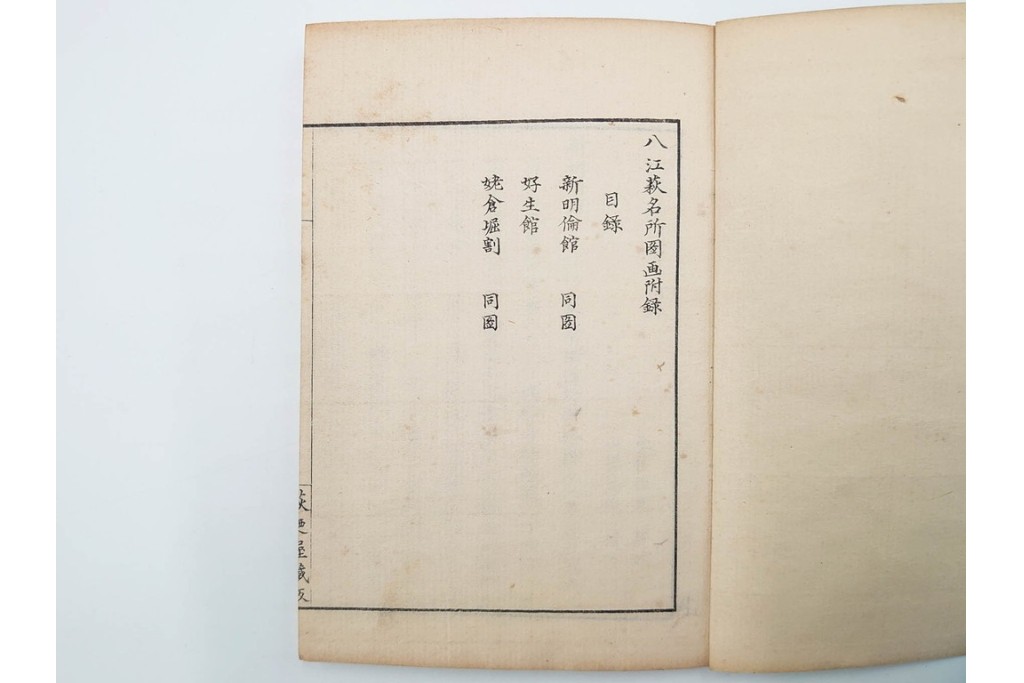 八江萩名所圖画附録
目録
新明倫館 同圖
好生館
姥倉堀割 同圖